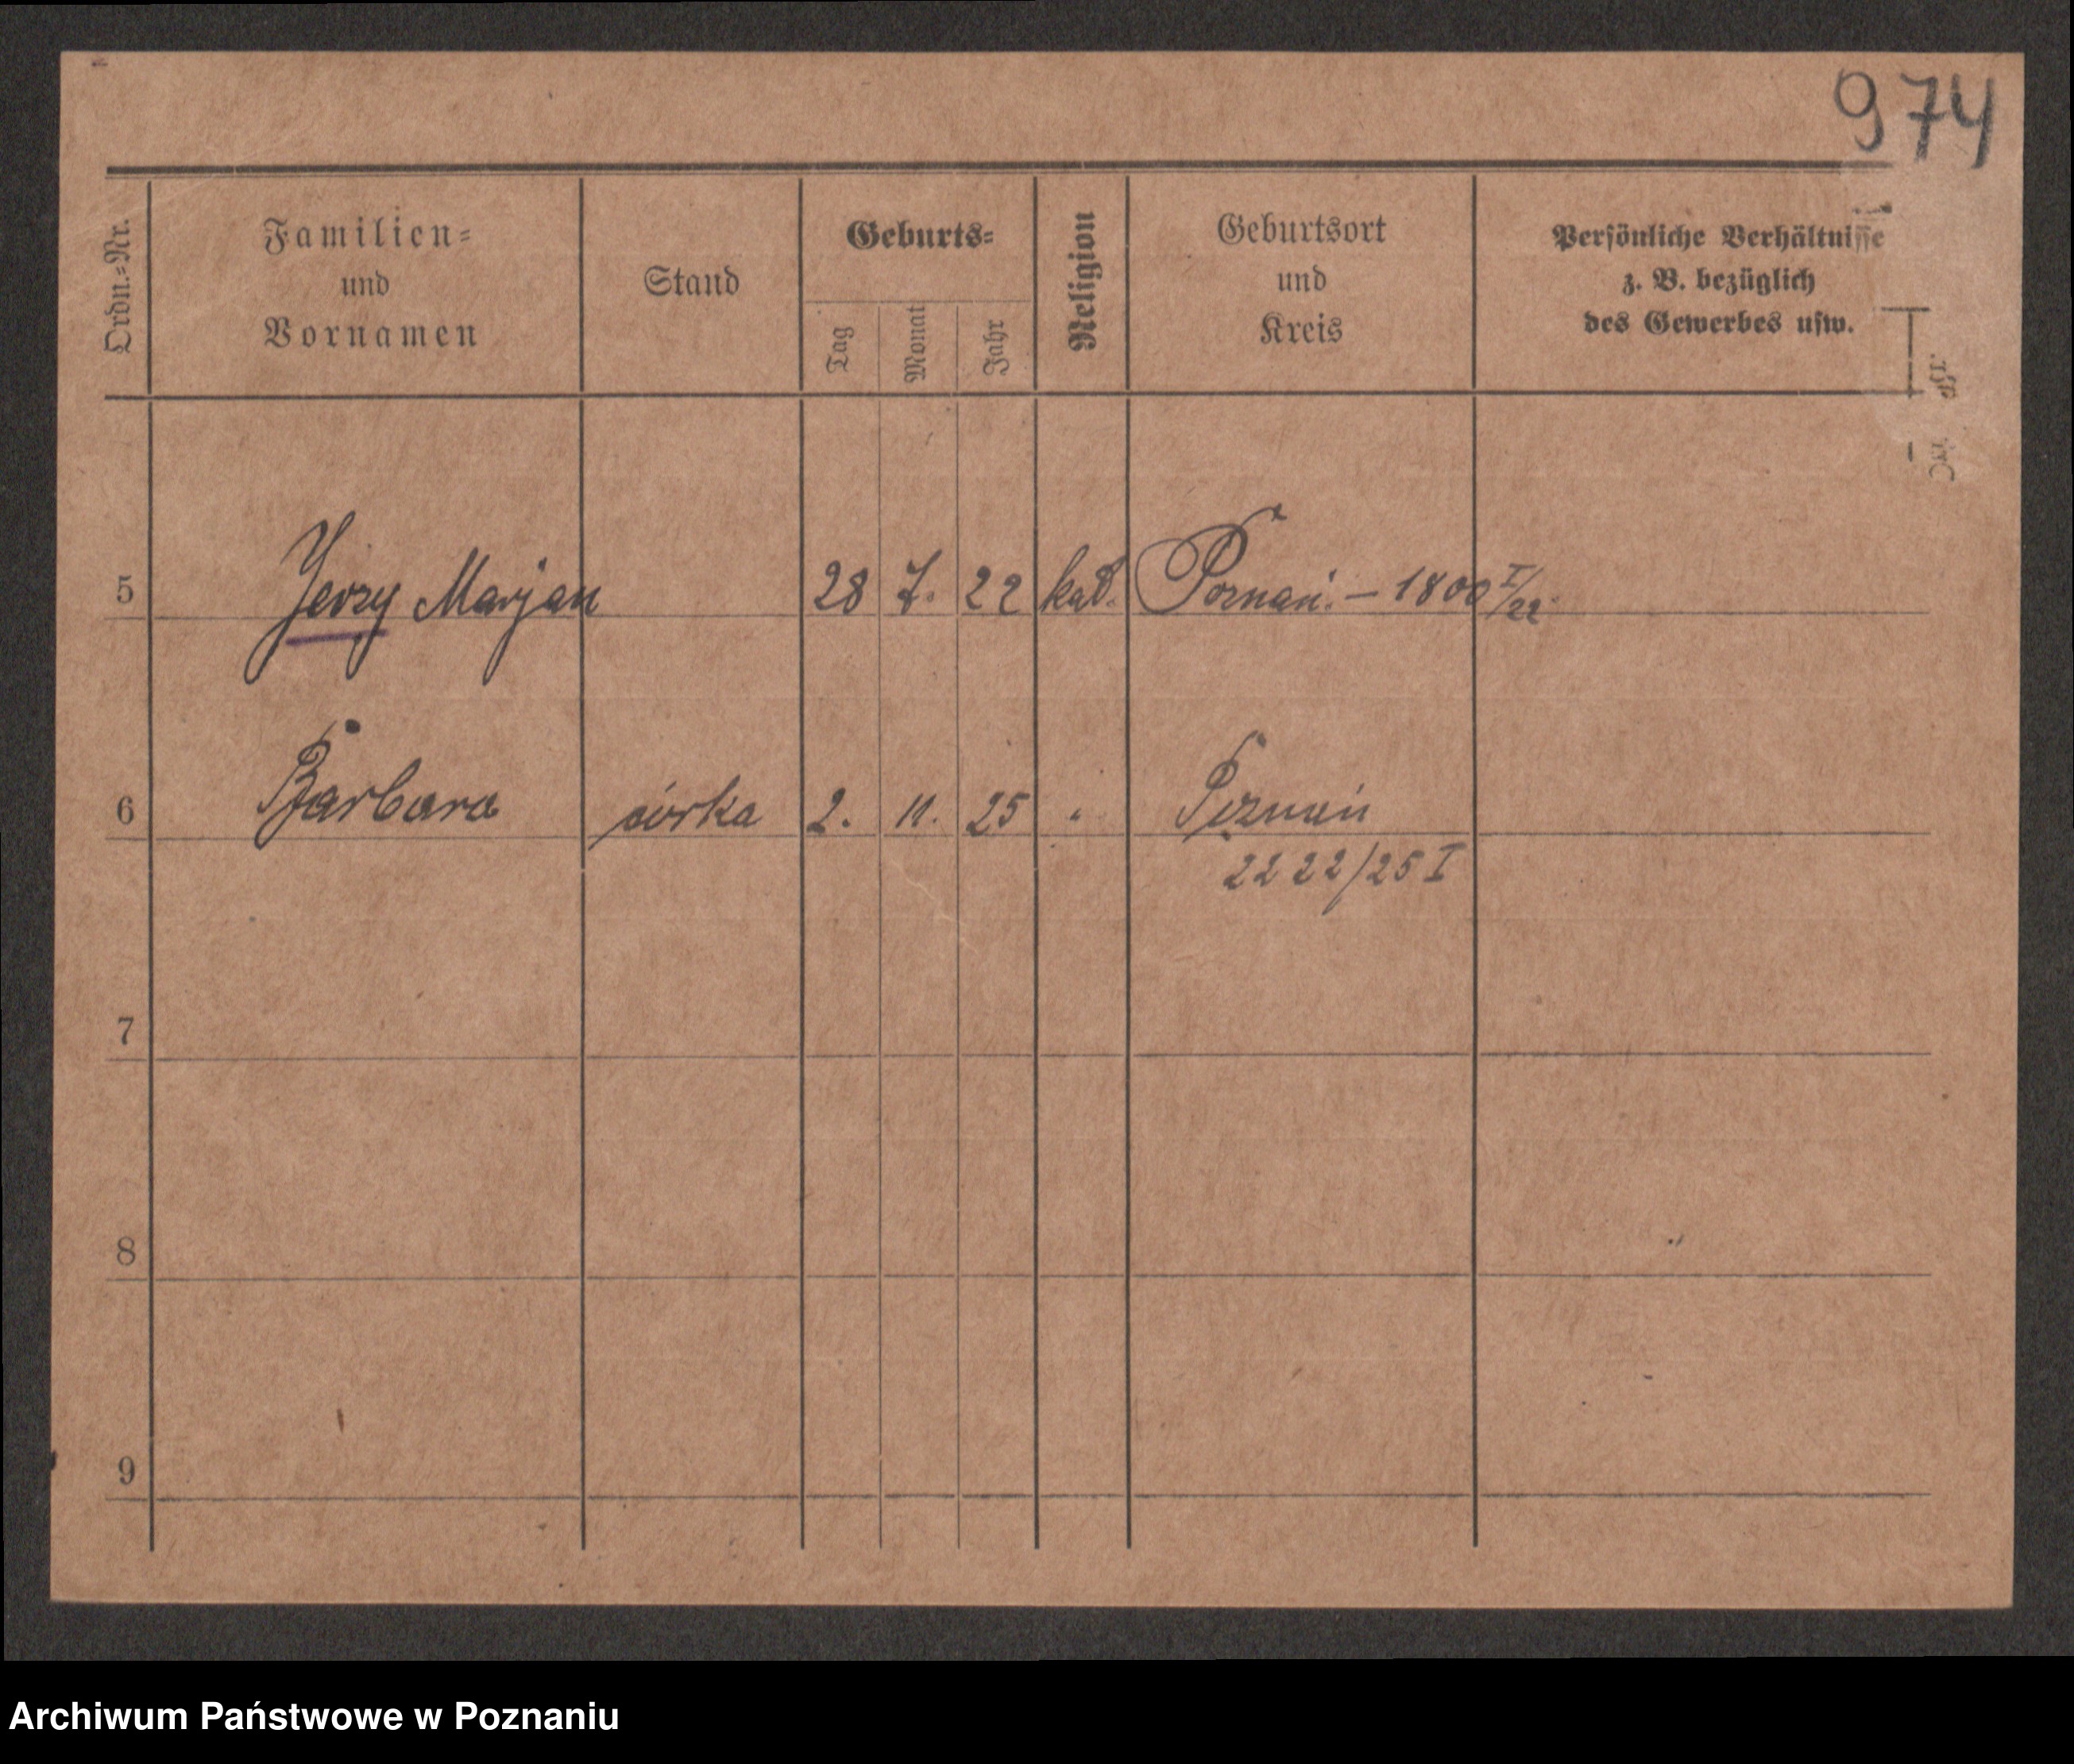 974
Ordn.=Nr.
Familien=
und
Vornamen
Stand
Geburts=
Tag
Monat
Jahr
Religion
Geburtsort
und
Kreis
Persönliche Verhältnisse
z. B. bezüglich
des Gewerbes usw.
5 Jerzy Marjan 28 7. 22 kat. Poznań. – 1800 I/22.
6 Barbara córka 2. 11. 25 " Poznań
2222/25 I
7
8
9
Archiwum Państwowe w Poznaniu